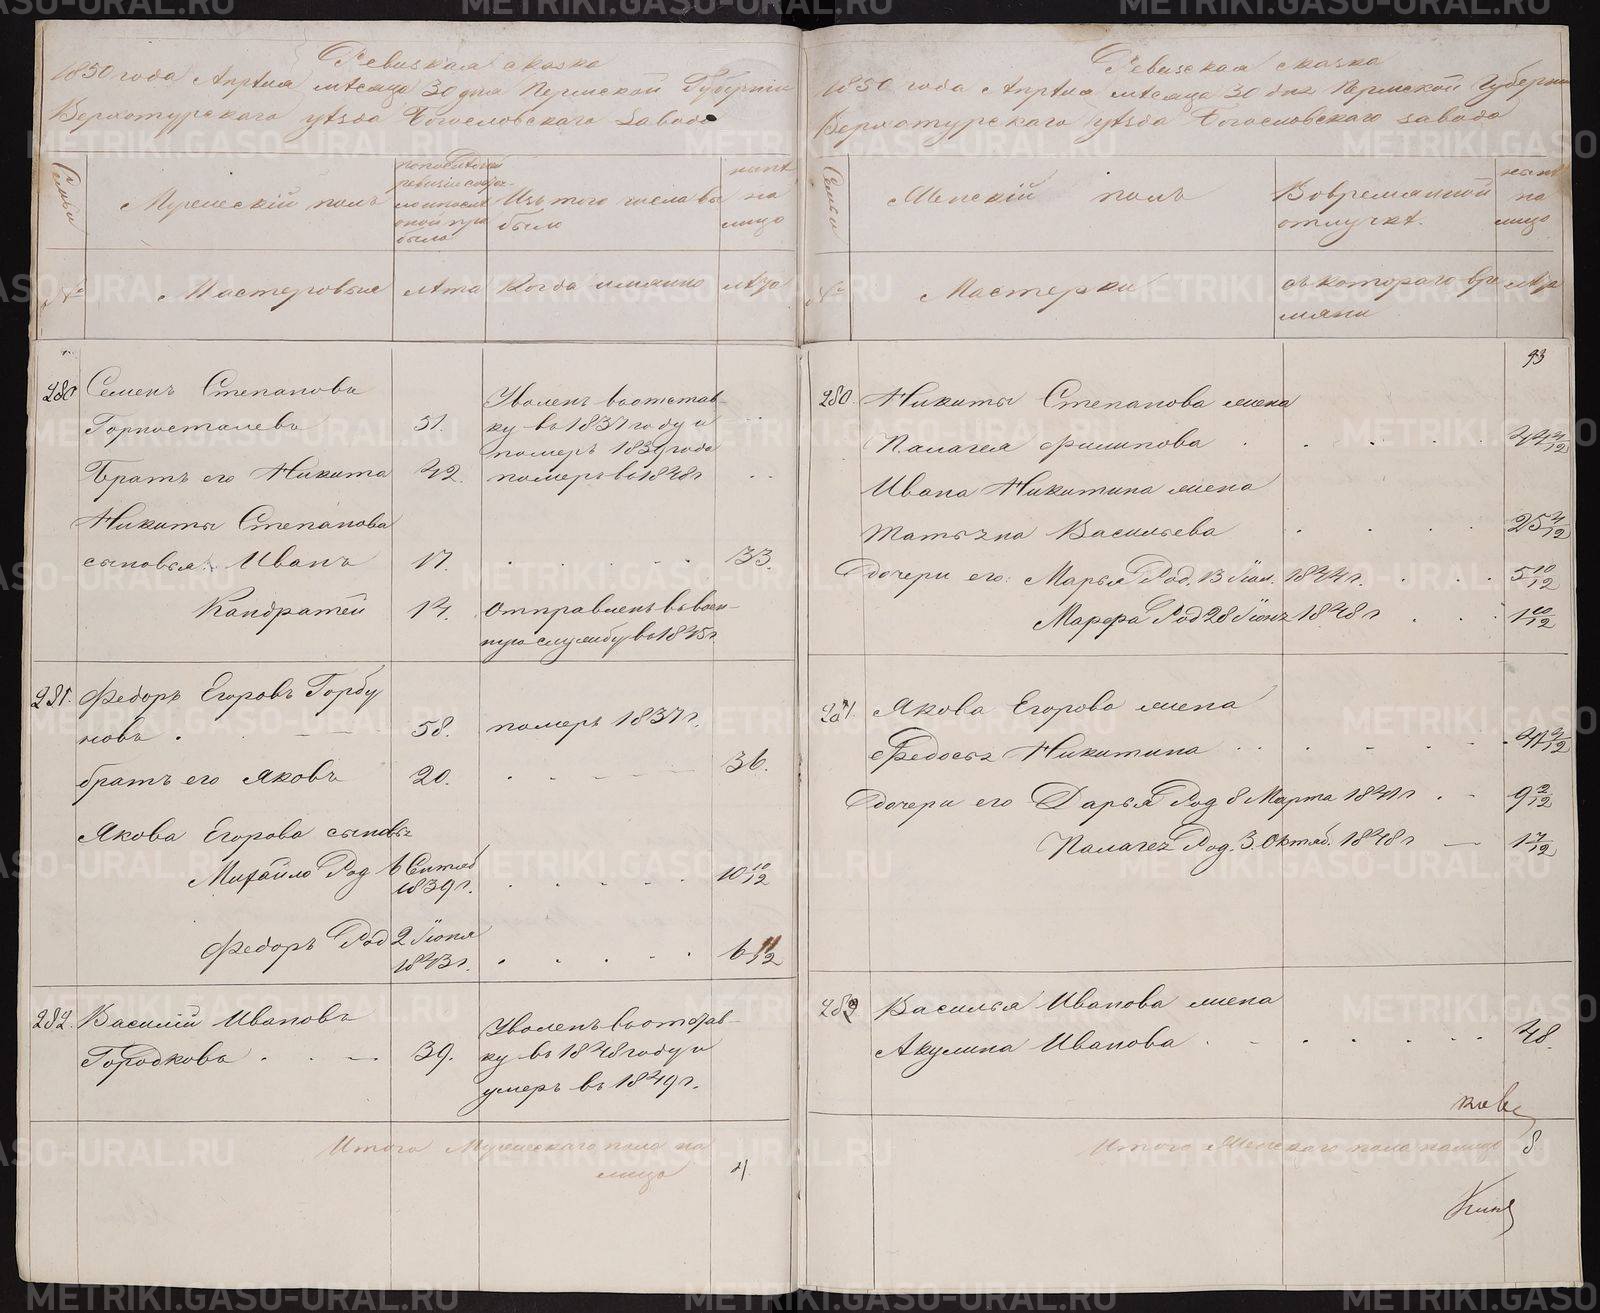 Ревизская сказка
1850 года Апрѣля мѣсяца 30 дня Пермской Губерніи
Верхотурскаго уѣзда Богословскаго завода
Семьи
Мужескій полъ
по последней
ревизіи состоя-
ло и после
оной при
было
Изъ того числа вы
было
нынѣ
на
лицо
№
Мастеровые
лѣта
Когда имянно
лѣта
280
Семенъ Степановъ
Горностаевъ
51.
Уволенъ въ отстав-
ку въ 1837 году и
померъ 1839 года
Братъ его Никита
42.
померъ въ 1848 г
Никиты Степанова
сыновья: Иванъ
17.
33.
Кандратей
14.
Отправленъ въ воен-
ную службу въ 1845 г
281.
Федоръ Егоровъ Горбу
новъ
58.
померъ 1837 г.
братъ его Яковъ
20.
36.
Якова Егорова сыновья
Михайло Род 6 Сентяб
1839 г.
10 10/12
Федоръ Род 2 Іюня
1843 г.
6 11/12
282.
Василій Ивановъ
Городковъ
39.
Уволенъ въ отстав-
ку въ 1848 году и
умеръ въ 1849 г.
Итого Мужескаго пола на
лицо
4
Ревизская сказка
1850 года Апрѣля мѣсяца 30 дня Пермской Губерніи
Верхотурскаго уѣзда Богословскаго завода
Семьи
Женскій полъ
Во временной
отлучкѣ.
нынѣ
на
лицо
№
Мастерки
съ котораго вре
мяни
лѣта
93
280.
Никиты Степанова жена
Палагея Филипова
44 4/12
Ивана Никитина жена
Татьяна Васильева
25 4/12
дочери его: Марья Род. 13 Іюл. 1844 г.
5 10/12
Марфа Род 28 Іюня 1848 г
1 10/12
281.
Якова Егорова жена
Федосья Никитина
дочери его Дарья Род 8 Марта 1841 г
9 2/12
Палагея Род. 3. Октяб. 1848 г
1 7/12
282
Василья Иванова жена
Акулина Иванова
48.
Итого Женскаго пола налицо
8
METRIKI.GASO-URAL.RU